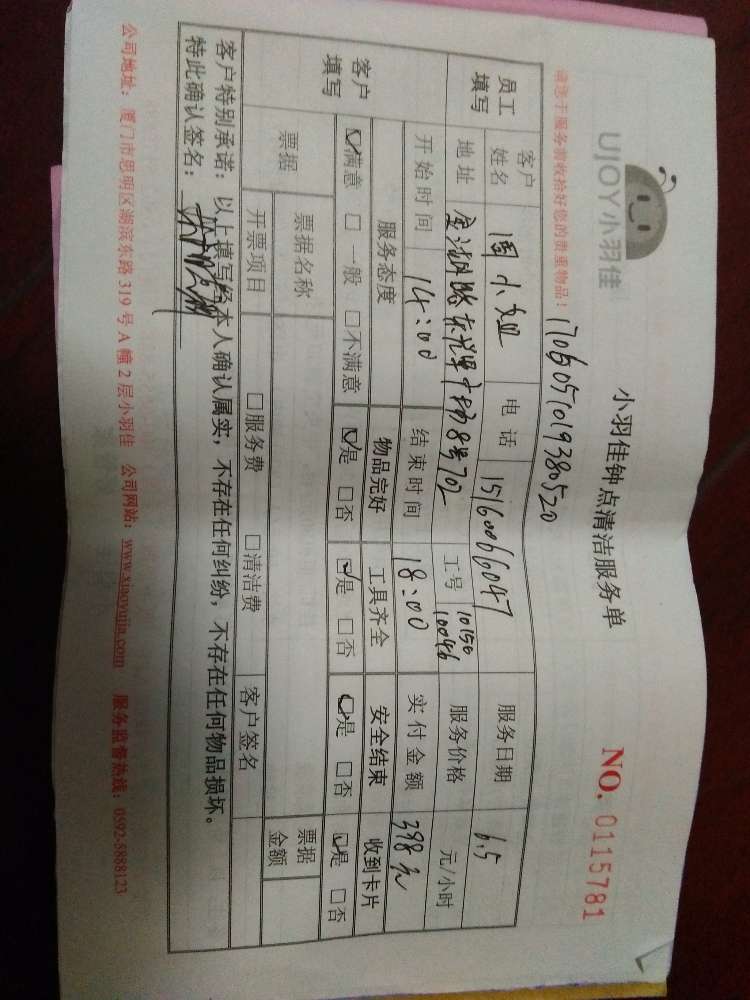 UJOY小羽佳
小羽佳钟点清洁服务单
NO. 0115781
请您于服务前收拾好您的贵重物品!
1706051019380520
员工填写
客户姓名 周小姐 电话 15160066047 服务日期 6.5
地址 8号702 工号 10150 10046 服务价格 元/小时
开始时间 14:00 结束时间 18:00 实付金额 398元
客户填写
服务态度 物品完好 工具齐全 安全结束 收到卡片
☑满意 □一般 □不满意 ☑是 □否 ☑是 □否 ☑是 □否 ☑是 □否
票据 票据名称 票据金额
开票项目 □服务费 □清洁费 客户签名
客户特别承诺:以上填写经本人确认属实,不存在任何纠纷,不存在任何物品损坏。
特此确认签名:
公司地址:厦门市思明区湖滨东路319号A幢2层小羽佳 公司网站:www.xiaoyujia.com 服务监督热线:0592-5888123